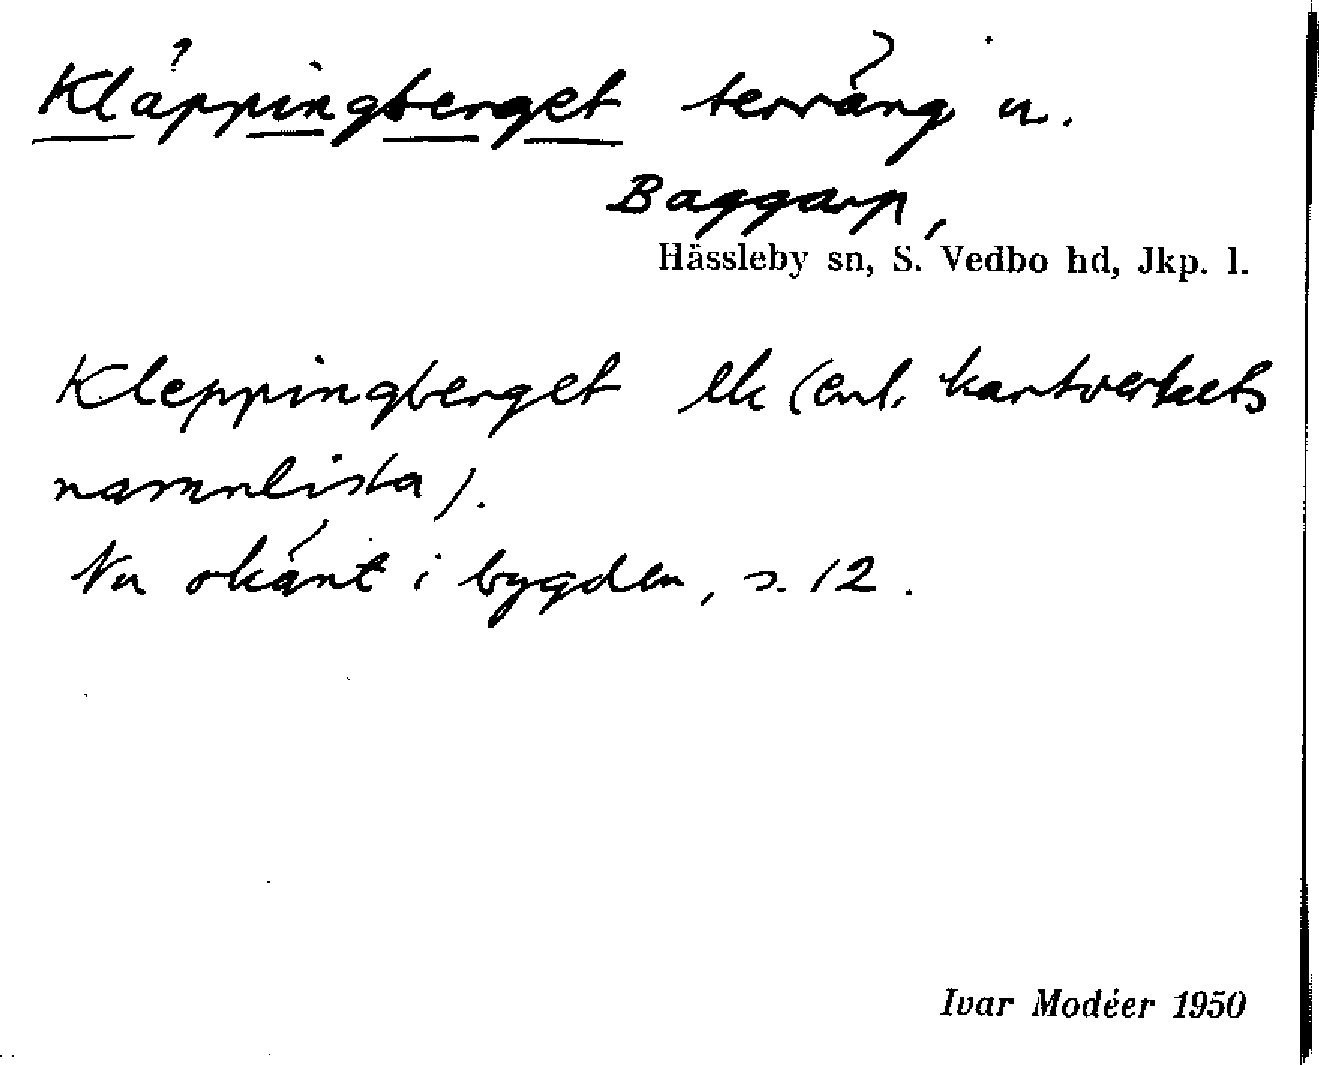 Kläppingberget terräng u.
Baggarp,
Hässleby sn, S. Vedbo hd, Jkp. l.
Kleppingberget lk (enl. kartverkets
namnlista).
Nu okänt i bygden, s. 12.
Ivar Modéer 1950